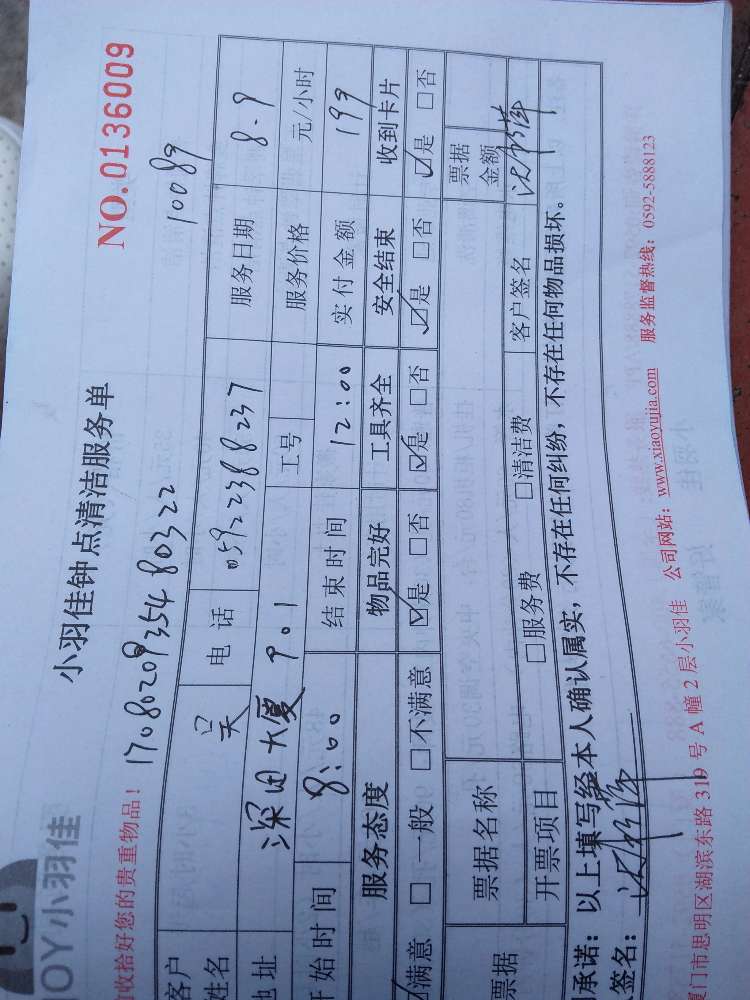 小羽佳钟点清洁服务单
NO.0136009
JOY小羽佳
收拾好您的贵重物品! 1708020935480322 10089
客户姓名 吴 电话 05922388237 服务日期 8.9
地址 深田大厦901 工号 服务价格 元/小时
开始时间 8:00 结束时间 12:00 实付金额 199
服务态度 物品完好 工具齐全 安全结束 收到卡片
☑满意 □一般 □不满意 ☑是 □否 ☑是 □否 ☑是 □否 ☑是 □否
票据 票据名称 票据金额
开票项目 □服务费 □清洁费 客户签名
承诺:以上填写经本人确认属实,不存在任何纠纷,不存在任何物品损坏。
签名:
厦门市思明区湖滨东路319号A幢2层小羽佳 公司网站:www.xiaoyujia.com 服务监督热线:0592-5888123